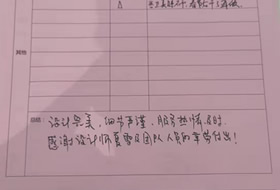 其他
总结：设计完美，细节严谨，服务热情及时
感谢设计师夏雪及团队人员的辛勤付出！